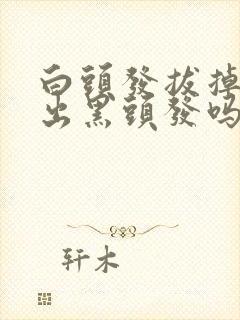 白頭發拔掉
出黑頭發吗
轩木